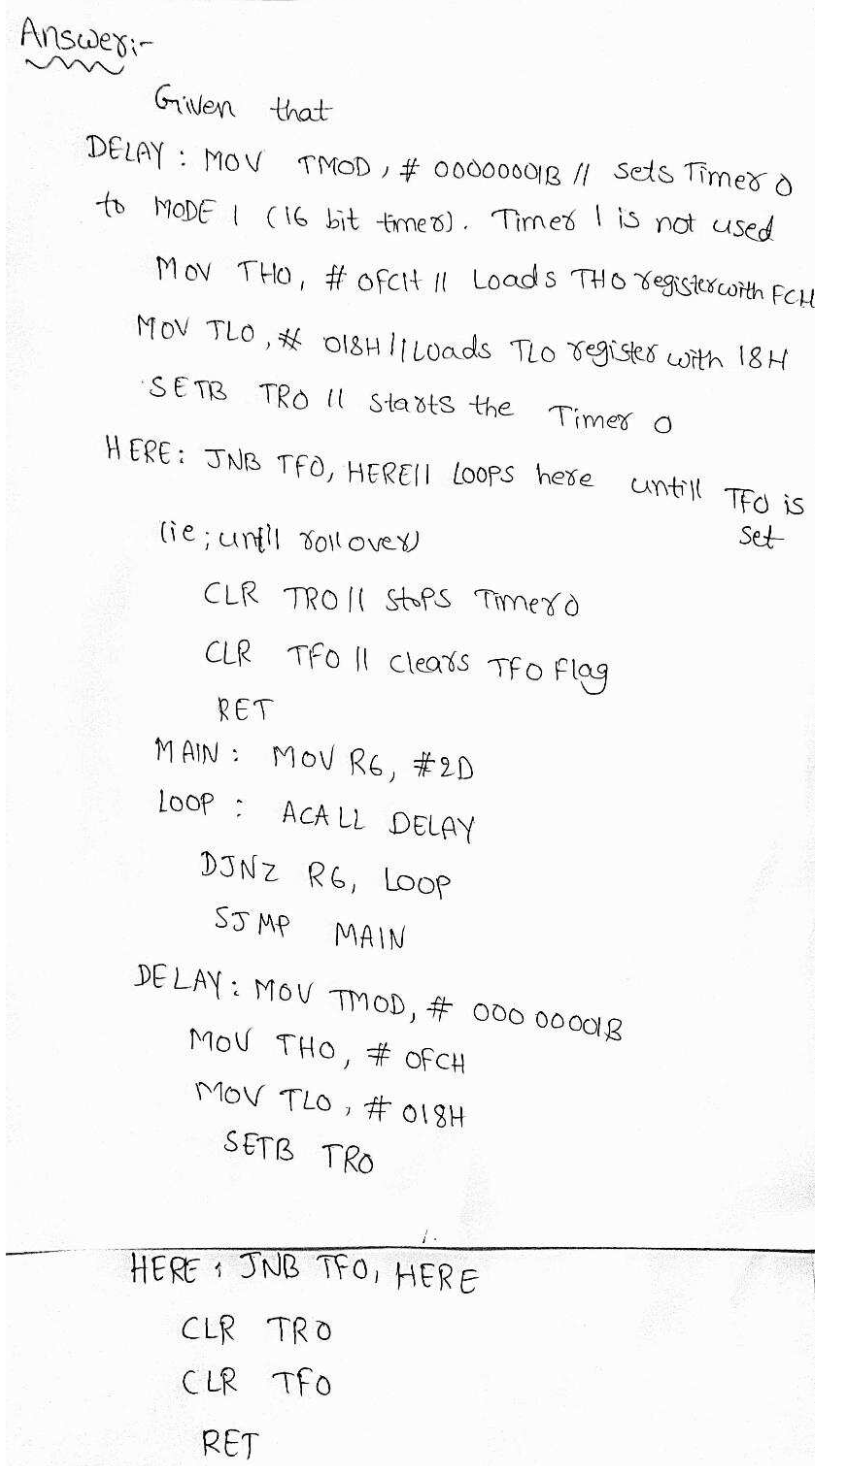 Answer:-
Given that
DELAY : MOV TMOD, # 00000001B // sets Timer 0
to MODE 1 (16 bit timer). Timer 1 is not used
MOV TH0, # 0FCH // Loads TH0 register with FCH
MOV TL0, # 018H // Loads TL0 register with 18H
SETB TR0 // starts the Timer 0
HERE: JNB TF0, HERE// LOOPS here untill TF0 is set
(ie; until rollover)
CLR TR0 // stops Timer 0
CLR TF0 // clears TF0 flag
RET
MAIN : MOV R6, #2D
LOOP : ACALL DELAY
DJNZ R6, LOOP
SJMP MAIN
DELAY: MOV TMOD, # 00000001B
MOV TH0, # 0FCH
MOV TL0, # 018H
SETB TR0
1.
HERE : JNB TF0, HERE
CLR TR0
CLR TF0
RET